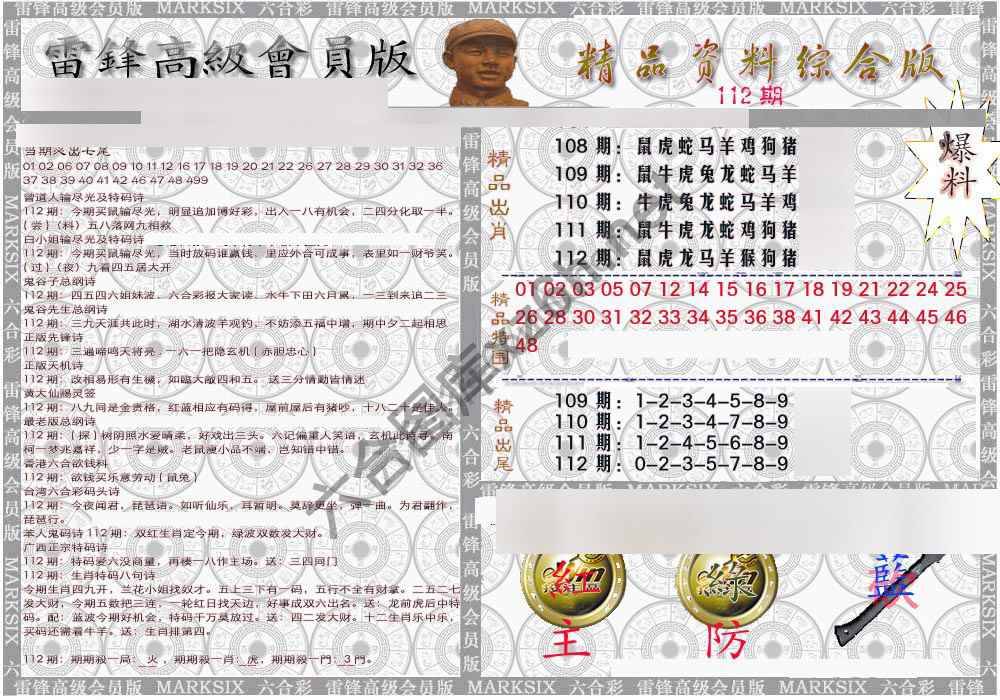 雷锋高级会员版 MARKSIX 六合彩 雷锋高级会员版 MARKSIX 六合彩 雷锋高级会员版 MARKSIX 六合彩
雷鋒高級會員版
精品资料综合版
112期
爆料
01 02 06 07 08 09 10 11 12 16 17 18 19 20 21 22 26 27 28 29 30 31 32 36
37 38 39 40 41 42 46 47 48 499
曾道人输尽光及特码诗
112期：今期买鼠输尽光，明显追加博好彩，出入一八有机会，二四分化取一半。
{尝}（料）五八落网九相救
白小姐输尽光及特码诗
112期：今期买鼠输尽光，当时放码谁赢钱，里应外合可成事，表里如一财爷笑。
{过}（夜）九看四五居大开
鬼谷子总纲诗
112期：四五四六姐妹波，六合彩报大家读，水牛下田六月累，一三到来追二三
鬼谷先生总纲诗
112期：三九天涯共此时，湖水清波羊观钓，不妨添五福中增，期中夕二起相思
正版先锋诗
112期：三遍啼鸣天将亮，一六一把隐玄机{赤胆忠心}
正版天机诗
112期：改相易形有生機，如臨大敵四和五。送三分情勤皆情迷
黄大仙赐灵签
112期：八九同是金贵格，红蓝相应有码得，屋前屋后有猪吵，十八二十是佳人。
最老版总纲诗
112期：{探}树阴照水爱晴柔，好戏出三头。六记偏重人笑语，玄机此商寻。南
柯一梦兆嘉祥，少一字是贼。老鼠瘦小品不端，岂知错中错。
香港六合欲钱料
112期：欲钱买乐意劳动{鼠兔}
台湾六合彩码头诗
112期：今夜闻君，琵琶语。如听仙乐，耳暂明。莫辞更坐，弹一曲。为君翻作，
琵琶行。
笨人鬼码诗 112期：双红生肖定今期，绿波双数发大财。
广西正宗特码诗
112期：特码爱六没商量，再楼一八作主场。送：三四同门
112期：生肖特码八句诗
今期生肖四九开，兰花小姐找奴才。五上三下有一码，五行不全有财拿。二五二七
发大财，今期五数把三连，一轮红日找天边，好事成双六出名。送：龙前虎后中特
码。配：蓝波今期好机会，特码千万莫放过。送：四二发大财。十二生肖乐中乐，
买码还需看牛羊。送：生肖排第四。
112期：期期殺一局：火，期期殺一肖：虎，期期殺一門：3門。
精品出肖
108 期：鼠虎蛇马羊鸡狗猪
109 期：鼠牛虎兔龙蛇马羊
110 期：牛虎兔龙蛇马羊鸡
111 期：鼠牛虎龙蛇鸡狗猪
112 期：鼠虎龙马羊猴狗猪
精品特围
01 02 03 05 07 12 14 15 16 17 18 19 21 22 24 25
26 28 30 31 32 33 34 35 36 38 41 42 43 44 45 46
48
精品出尾
109 期：1-2-3-4-5-8-9
110 期：1-2-3-4-7-8-9
111 期：1-2-4-5-6-8-9
112 期：0-2-3-5-7-8-9
紅
綠
藍
主
防
雷锋高级会员版 MARKSIX 六合彩 雷锋高级会员版 MARKSIX 六合彩 雷锋高级会员版